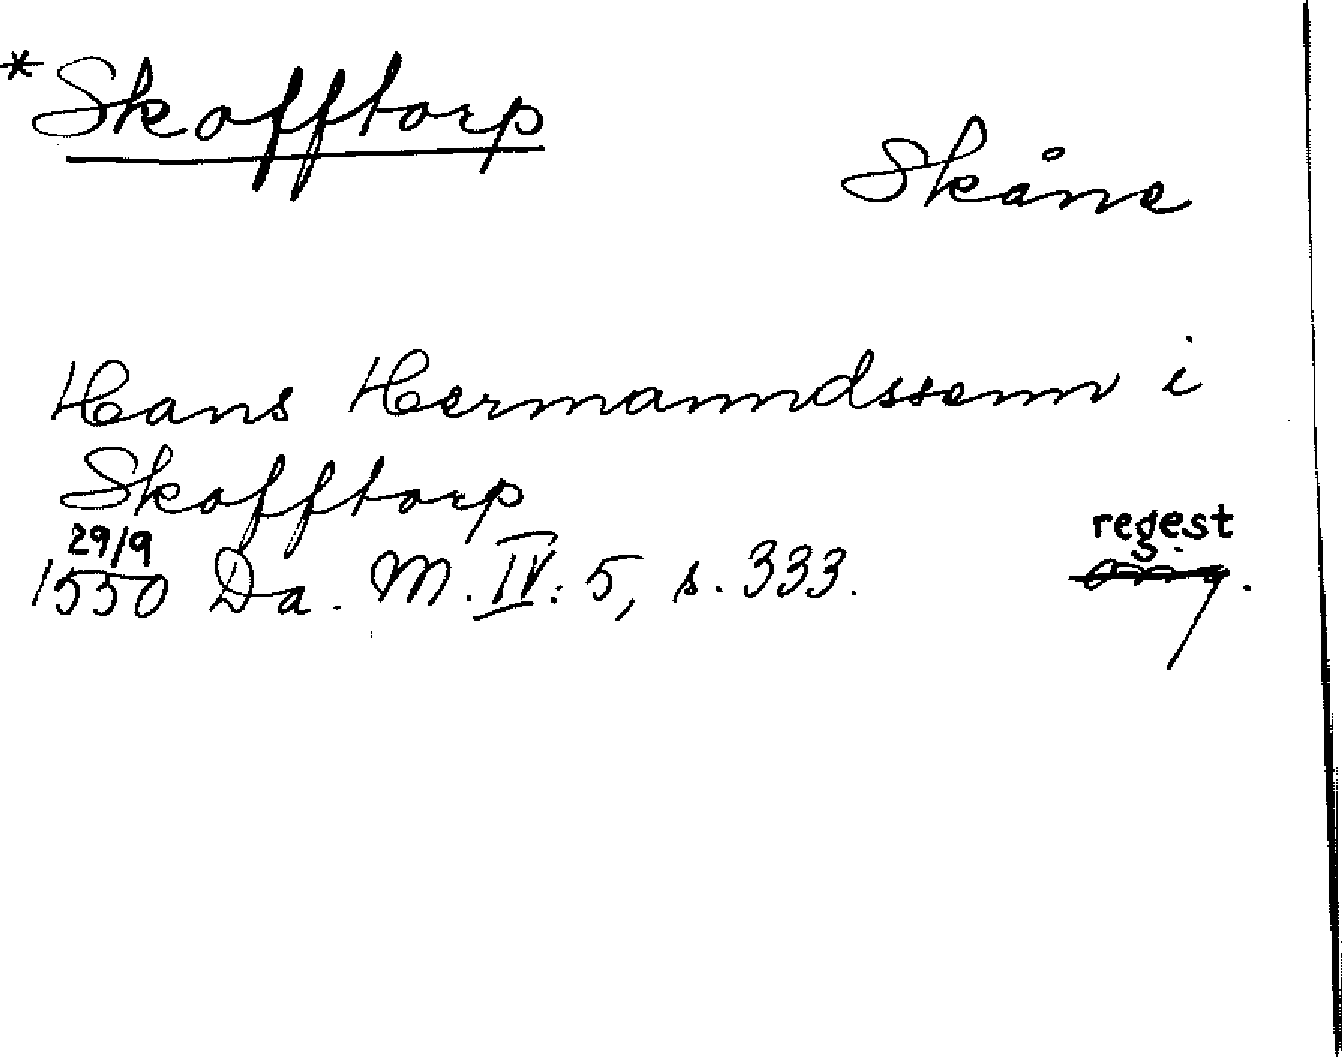 *Skofftorp
Skåne
Hans Hermanndssenn i
Skofftorp
29/9
1550 Da. M. IV: 5, s. 333.
regest